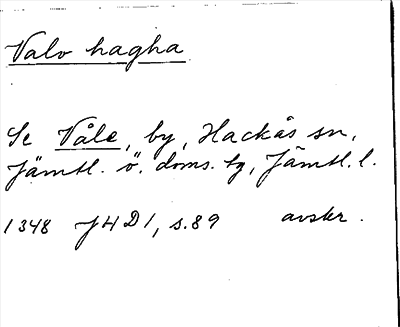 Valv hagha
Se Våle, by, Hackås sn,
Jämtl. ö. doms. tg, Jämtl. l.
1348 JHD 1, s. 89 avskr.